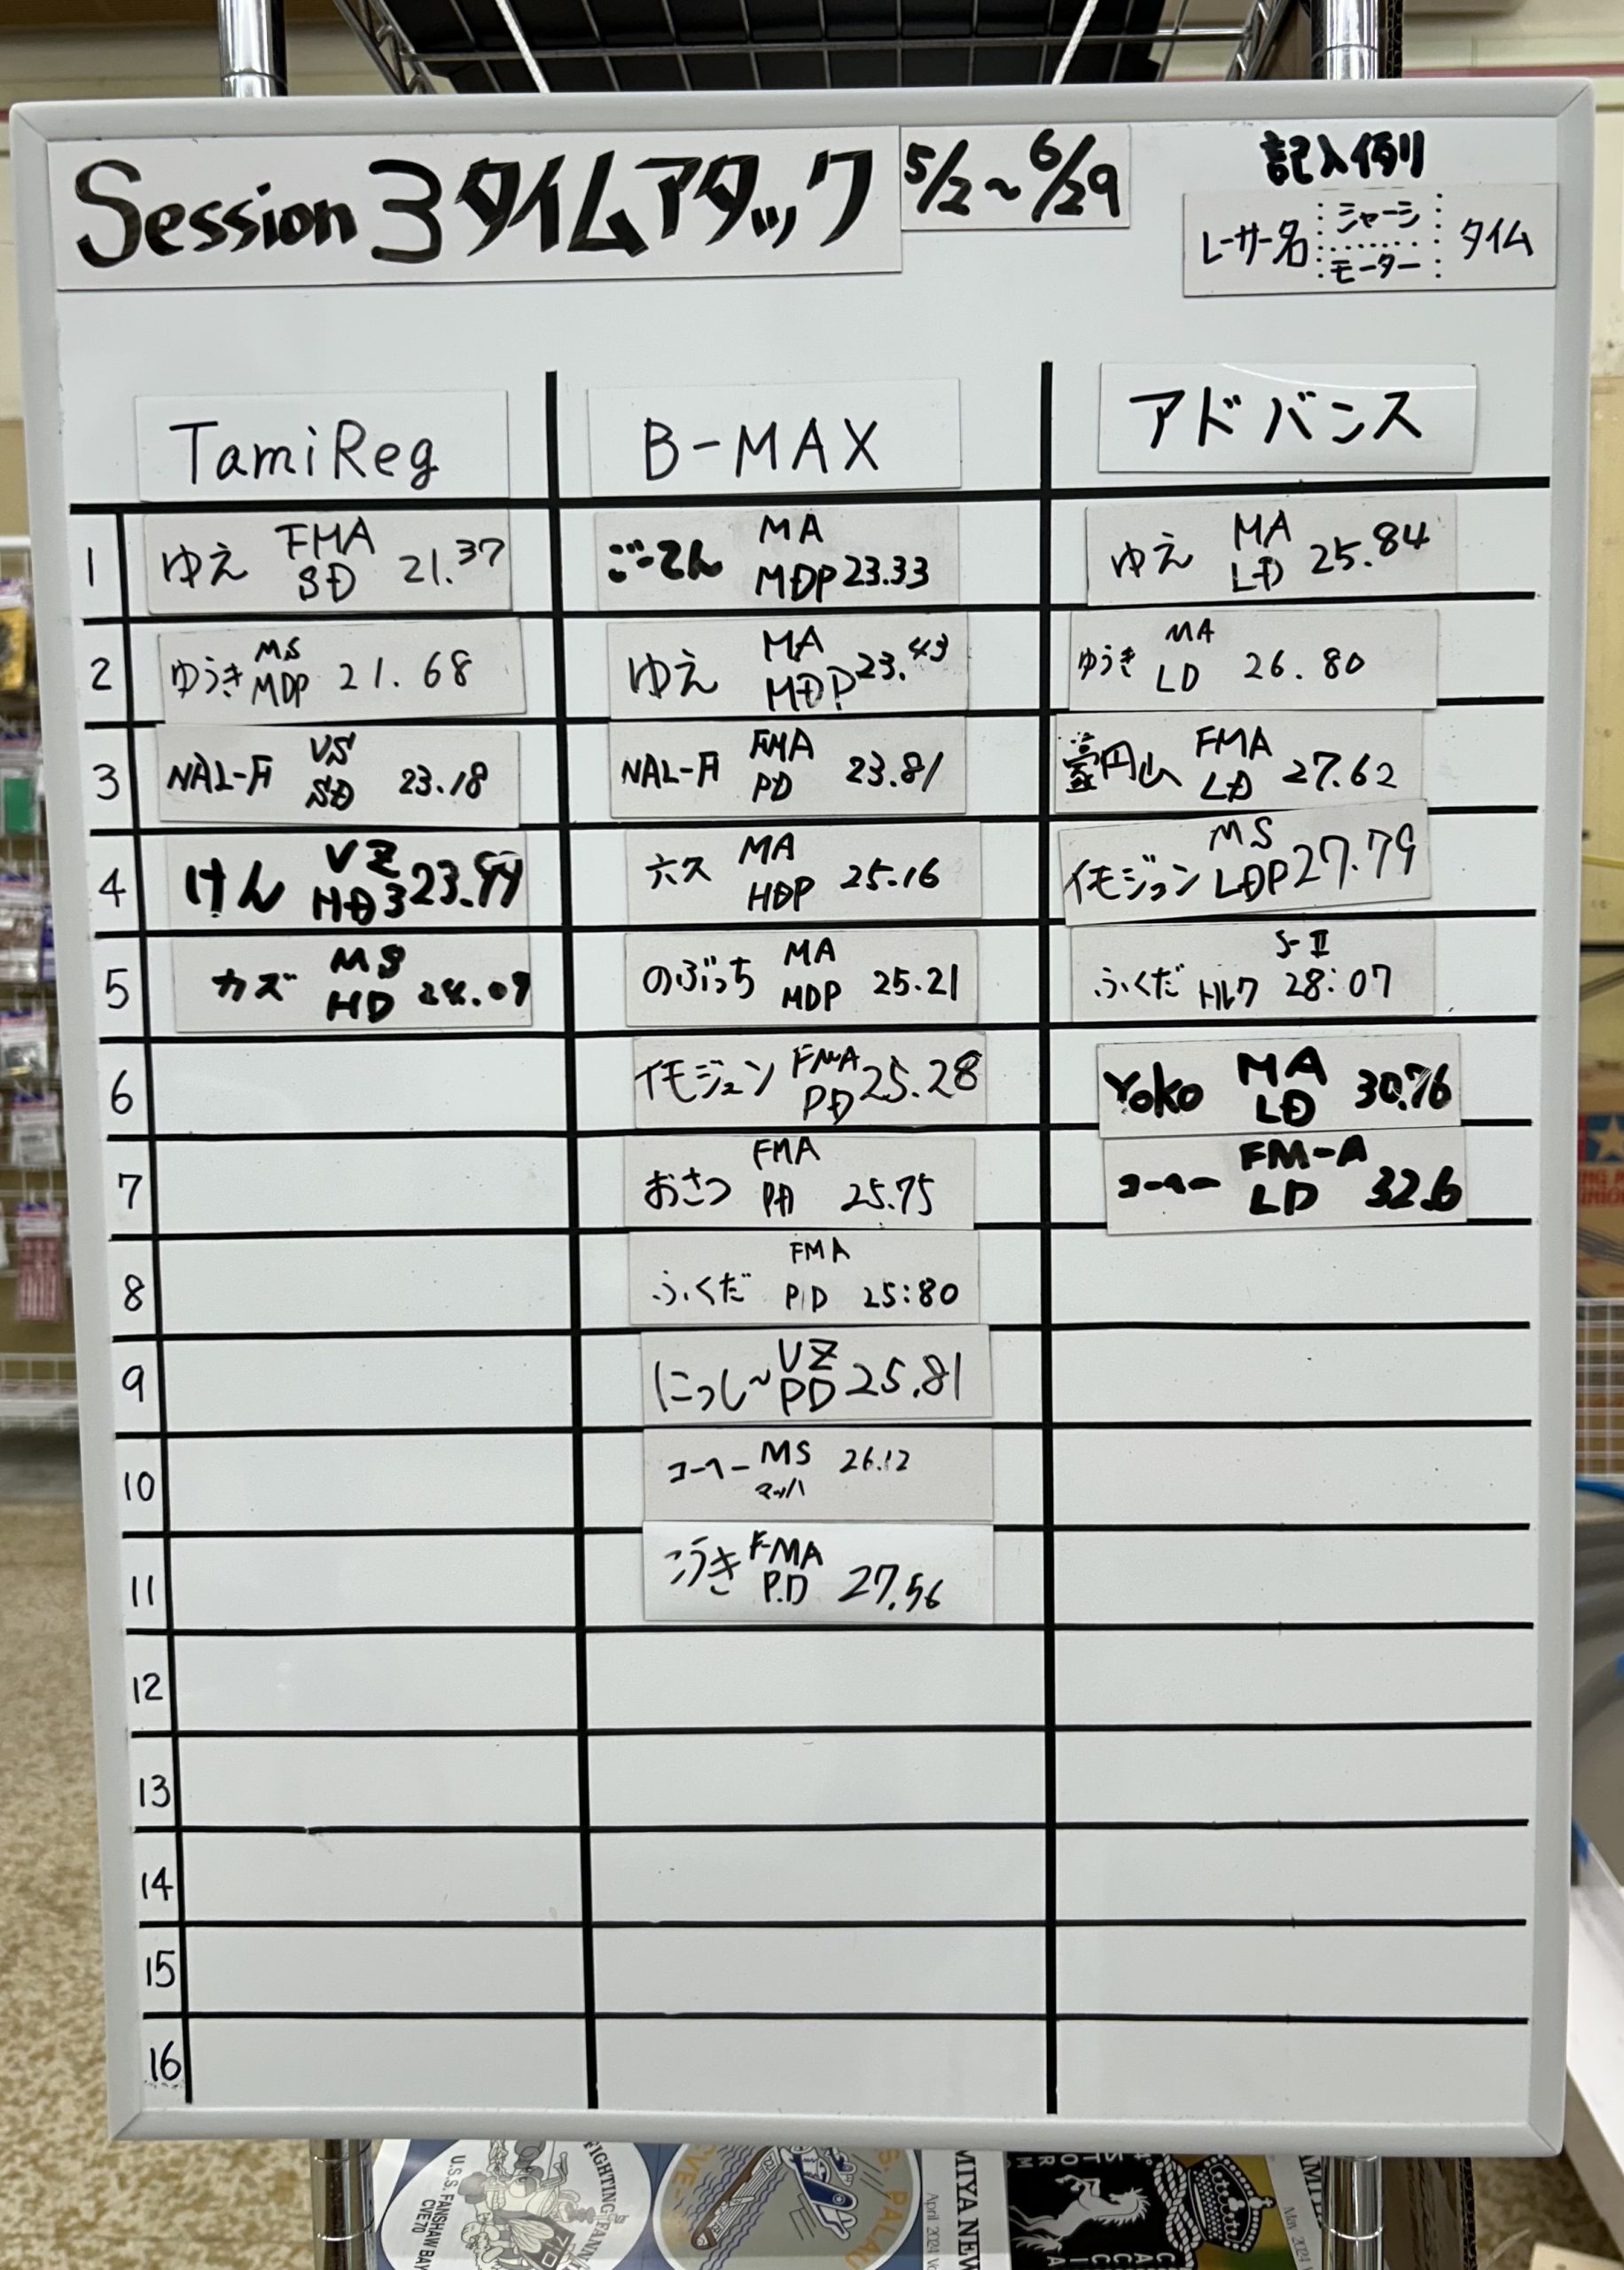 Session 3 タイムアタック 5/2〜6/29
記入例
レーサー名 シャーシ モーター タイム
TamiReg B-MAX アドバンス
1 ゆえ FMA SD 21.37
ごーてん MA MDP 23.33
ゆえ MA LD 25.84
2 ゆうき MS MDP 21.68
ゆえ MA MDP 23.43
ゆうき MA LD 26.80
3 NAL-月 VS SD 23.18
NAL-月 FMA PD 23.81
円山 FMA LD 27.62
4 けん VZ HD3 23.99
六ス MA HDP 25.16
イモジュン MS LDP 27.79
5 カズ MS HD 24.09
のぶっち MA MDP 25.21
ふくだ S-II トルク 28:07
6 イモジュン FMA PD 25.28
Yoko MA LD 30.76
7 おさつ FMA PD 25.75
コーヘー FM-A LD 32.6
8 ふくだ FMA PD 25:80
9 にっし〜 VZ PD 25.81
10 コーヘー MS マッハ 26.12
11 こうき FMA P.D 27.56
12
13
14
15
16
U.S.S. FANSHAW BAY
CVE70
FIGHTING FANNY
70
PALAU
MIYA NEW
April 2024
May 2024